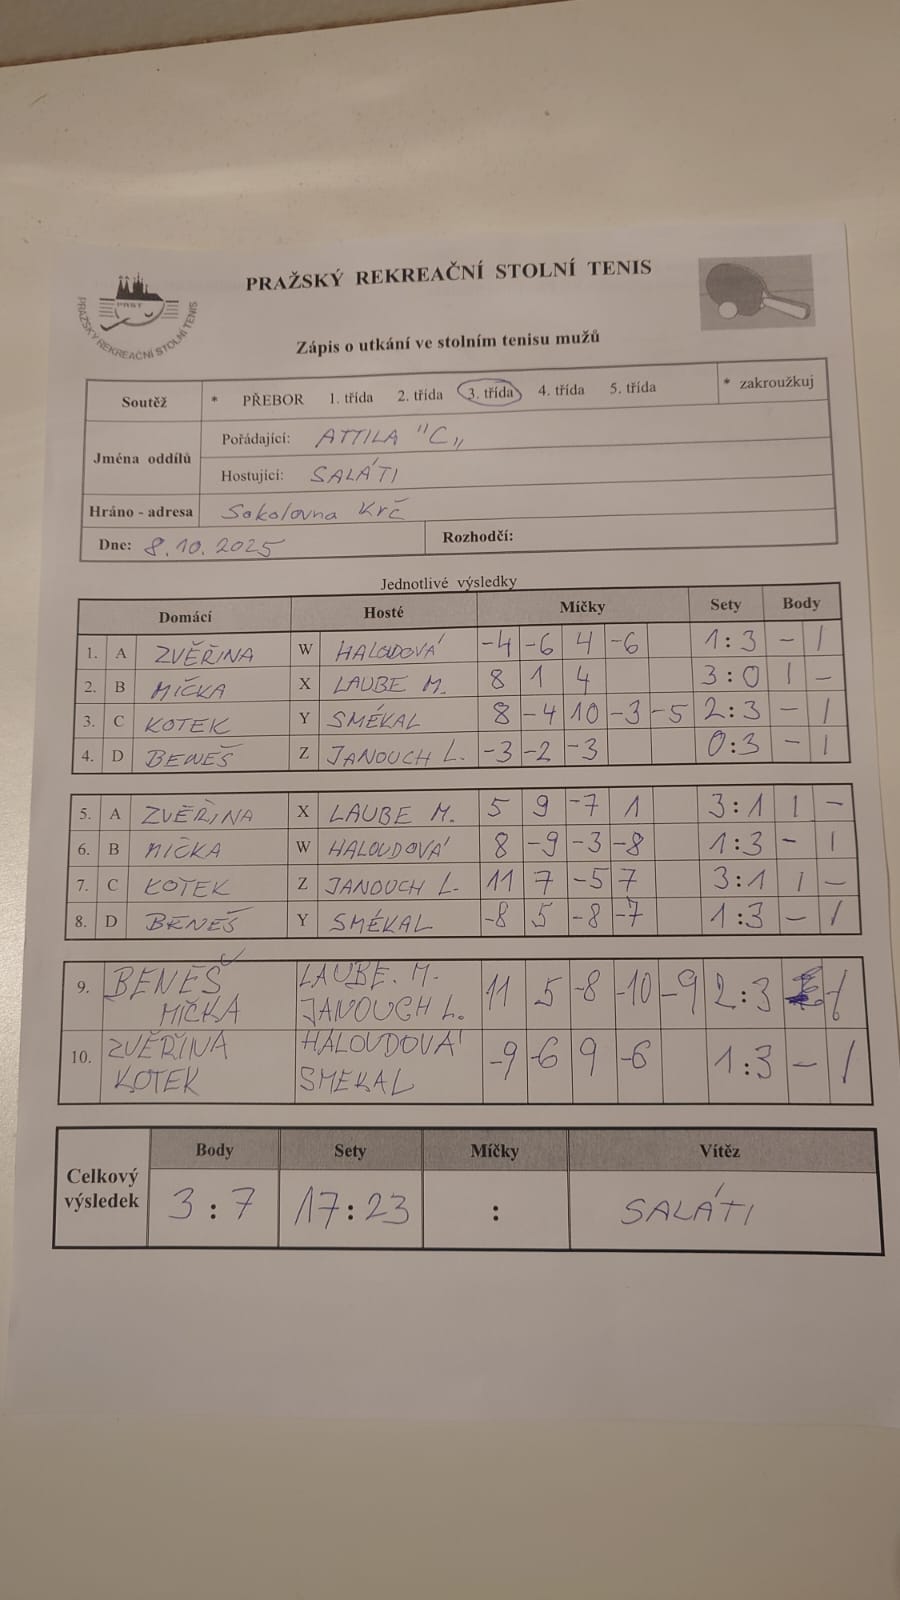 PRAŽSKÝ REKREAČNÍ STOLNÍ TENIS
PRST
PRAŽSKÝ REKREAČNÍ STOLNÍ TENIS
Zápis o utkání ve stolním tenisu mužů
Soutěž * PŘEBOR 1. třída 2. třída 3. třída 4. třída 5. třída * zakroužkuj
Jména oddílů
Pořádající: ATTILA "C„
Hostující: SALÁTI
Hráno - adresa Sokolovna Krč
Dne: 8.10.2025 Rozhodčí:
Jednotlivé výsledky
Domácí Hosté Míčky Sety Body
1. A ZVĚŘINA W HALODOVÁ -4 -6 4 -6 1:3 - 1
2. B MÍČKA X LAUBE M. 8 1 4 3:0 1 -
3. C KOTEK Y SMÉKAL 8 -4 10 -3 -5 2:3 - 1
4. D BENEŠ Z JANOUCH L. -3 -2 -3 0:3 - 1
5. A ZVĚŘINA X LAUBE M. 5 9 -7 1 3:1 1 -
6. B MÍČKA W HALOUDOVÁ 8 -9 -3 -8 1:3 - 1
7. C KOTEK Z JANOUCH L. 11 7 -5 7 3:1 1 -
8. D BENEŠ Y SMÉKAL -8 5 -8 -7 1:3 - 1
9. BENEŠ LAUBE. M. 11 5 -8 -10 -9 2:3 1
MÍČKA JANOUCH L.
10. ZVĚŘINA HALOUDOVÁ -9 -6 9 -6 1:3 - 1
KOTEK SMEKAL
Celkový výsledek
Body Sety Míčky Vítěz
3:7 17:23 : SALÁTI